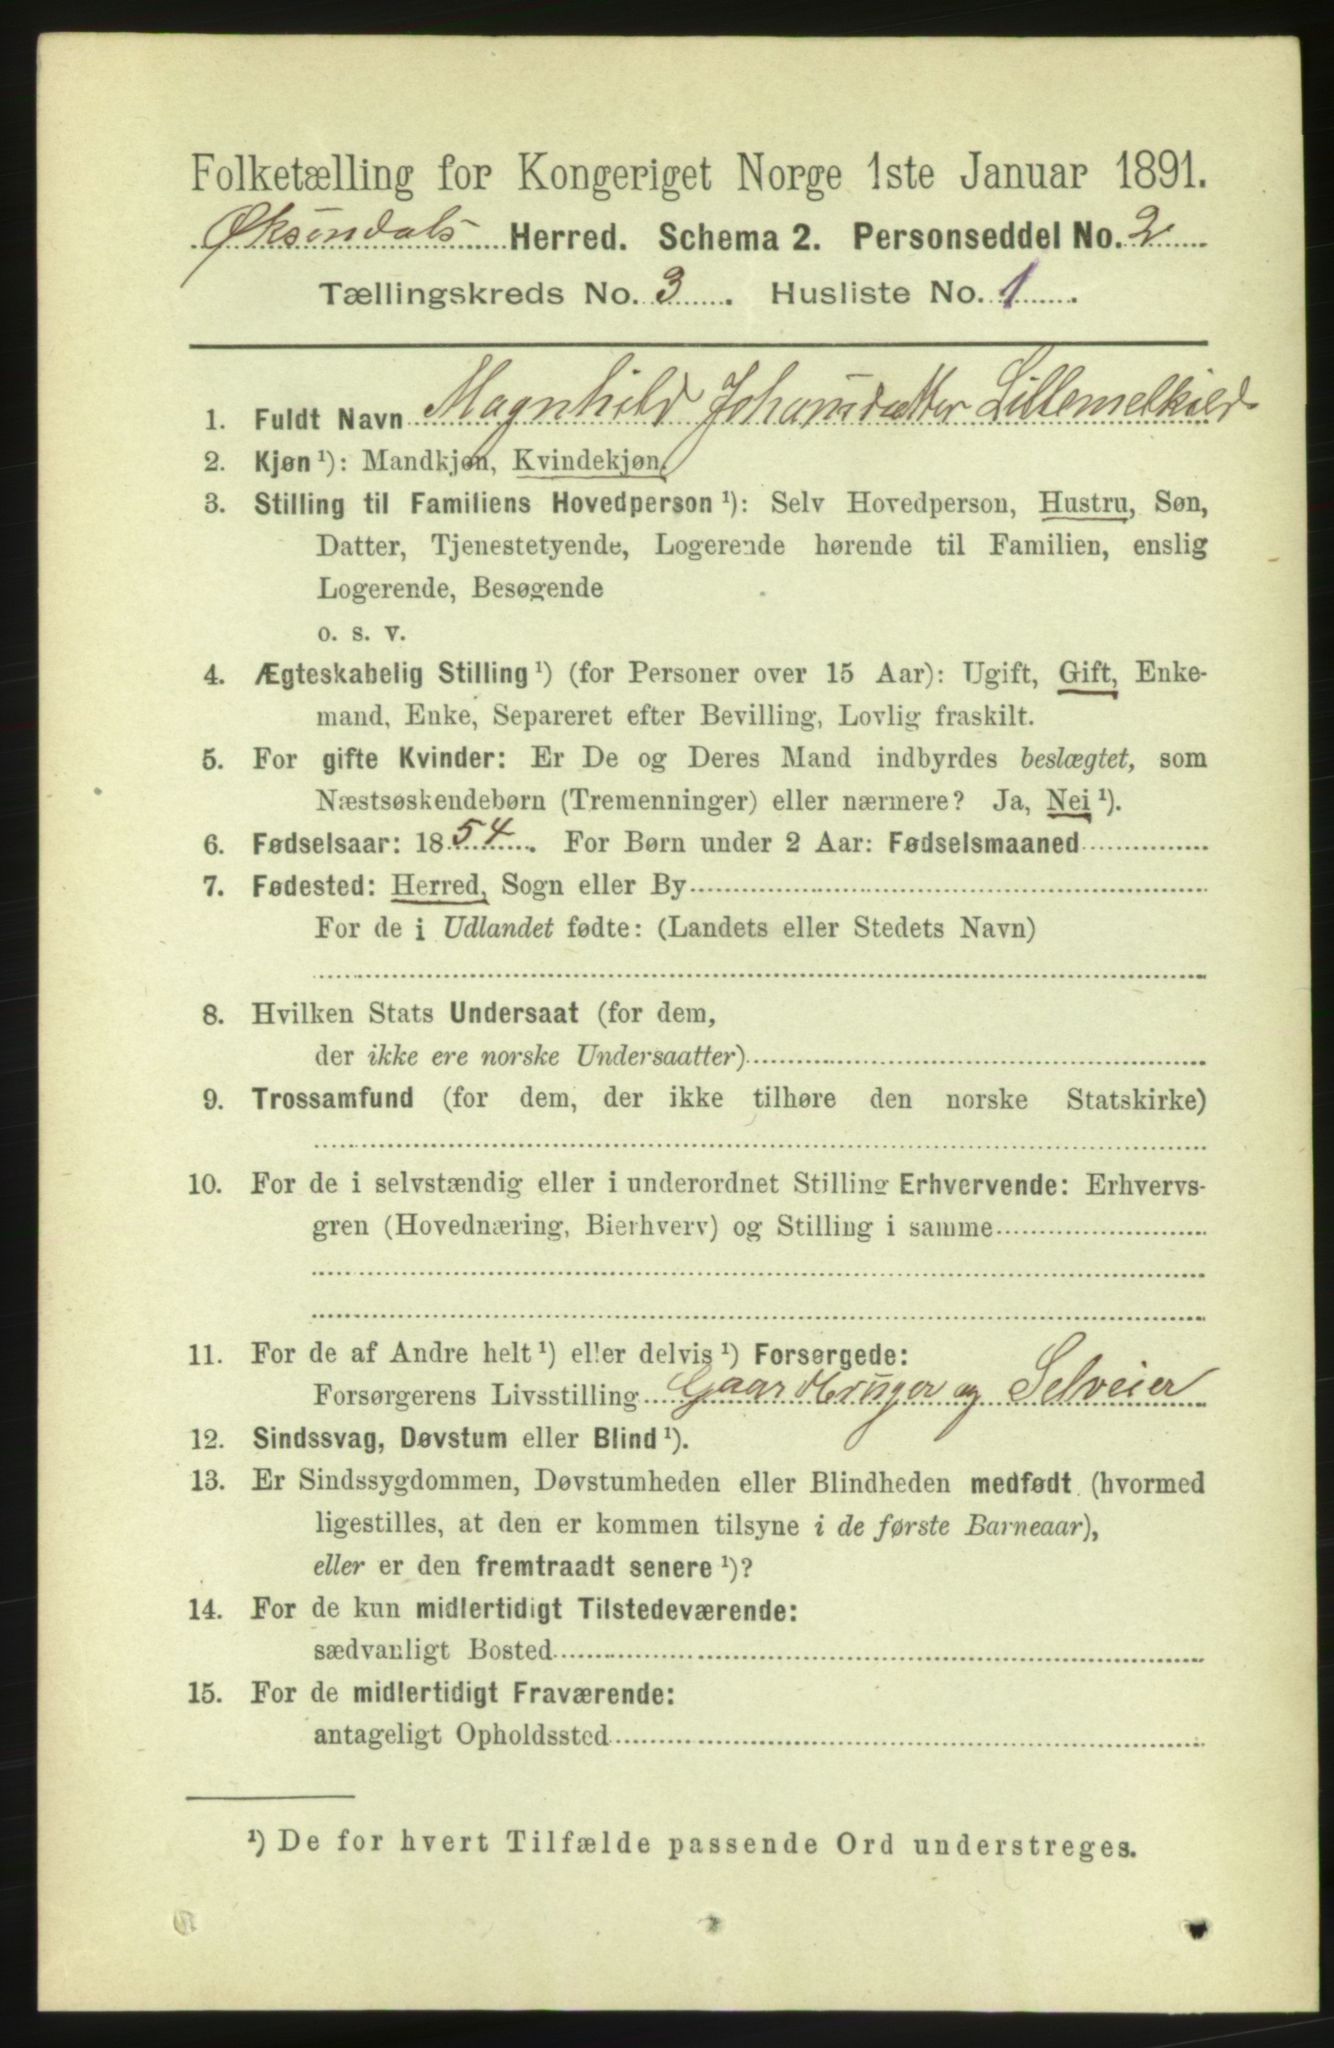 Folketælling for Kongeriget Norge 1ste Januar 1891.
Øksendals Herred. Schema 2. Personseddel No. 2
Tællingskreds No. 3. Husliste No. 1.
1. Fuldt Navn Magnhild Johansdatter Lillemelkild
2. Kjøn ¹): Mandkjøn, Kvindekjøn.
3. Stilling til Familiens Hovedperson ¹): Selv Hovedperson, Hustru, Søn,
Datter, Tjenestetyende, Logerende hørende til Familien, enslig
Logerende, Besøgende
o. s. v.
4. Ægteskabelig Stilling ¹) (for Personer over 15 Aar): Ugift, Gift, Enke-
mand, Enke, Separeret efter Bevilling, Lovlig fraskilt.
5. For gifte Kvinder: Er De og Deres Mand indbyrdes beslægtet, som
Næstsøskendebørn (Tremenninger) eller nærmere? Ja, Nei ¹).
6. Fødselsaar: 1854. For Børn under 2 Aar: Fødselsmaaned
7. Fødested: Herred, Sogn eller By
For de i Udlandet fødte: (Landets eller Stedets Navn)
8. Hvilken Stats Undersaat (for dem,
der ikke ere norske Undersaatter)
9. Trossamfund (for dem, der ikke tilhøre den norske Statskirke)
10. For de i selvstændig eller i underordnet Stilling Erhvervende: Erhvervs-
gren (Hovednæring, Bierhverv) og Stilling i samme
11. For de af Andre helt ¹) eller delvis ¹) Forsørgede:
Forsørgerens Livsstilling Gaardbruger og Selveier
12. Sindssvag, Døvstum eller Blind ¹).
13. Er Sindssygdommen, Døvstumheden eller Blindheden medfødt (hvormed
ligestilles, at den er kommen tilsyne i de første Barneaar),
eller er den fremtraadt senere ¹)?
14. For de kun midlertidigt Tilstedeværende:
sædvanligt Bosted
15. For de midlertidigt Fraværende:
antageligt Opholdssted
¹) De for hvert Tilfælde passende Ord understreges.